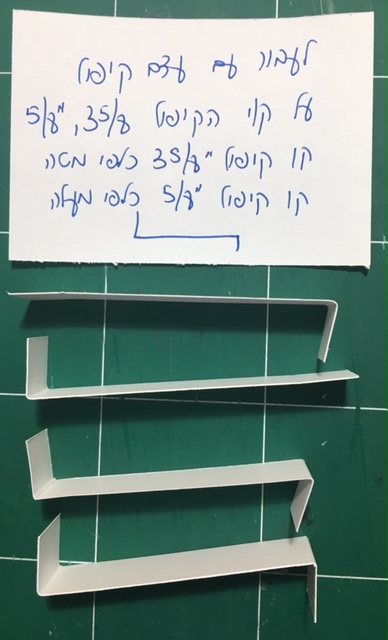 לעבור עם עצם קיפול
על קוי הקיפול 3⅝, ⅝"
קו קיפול 3⅝" כלפי מטה
קו קיפול ⅝" כלפי מעלה